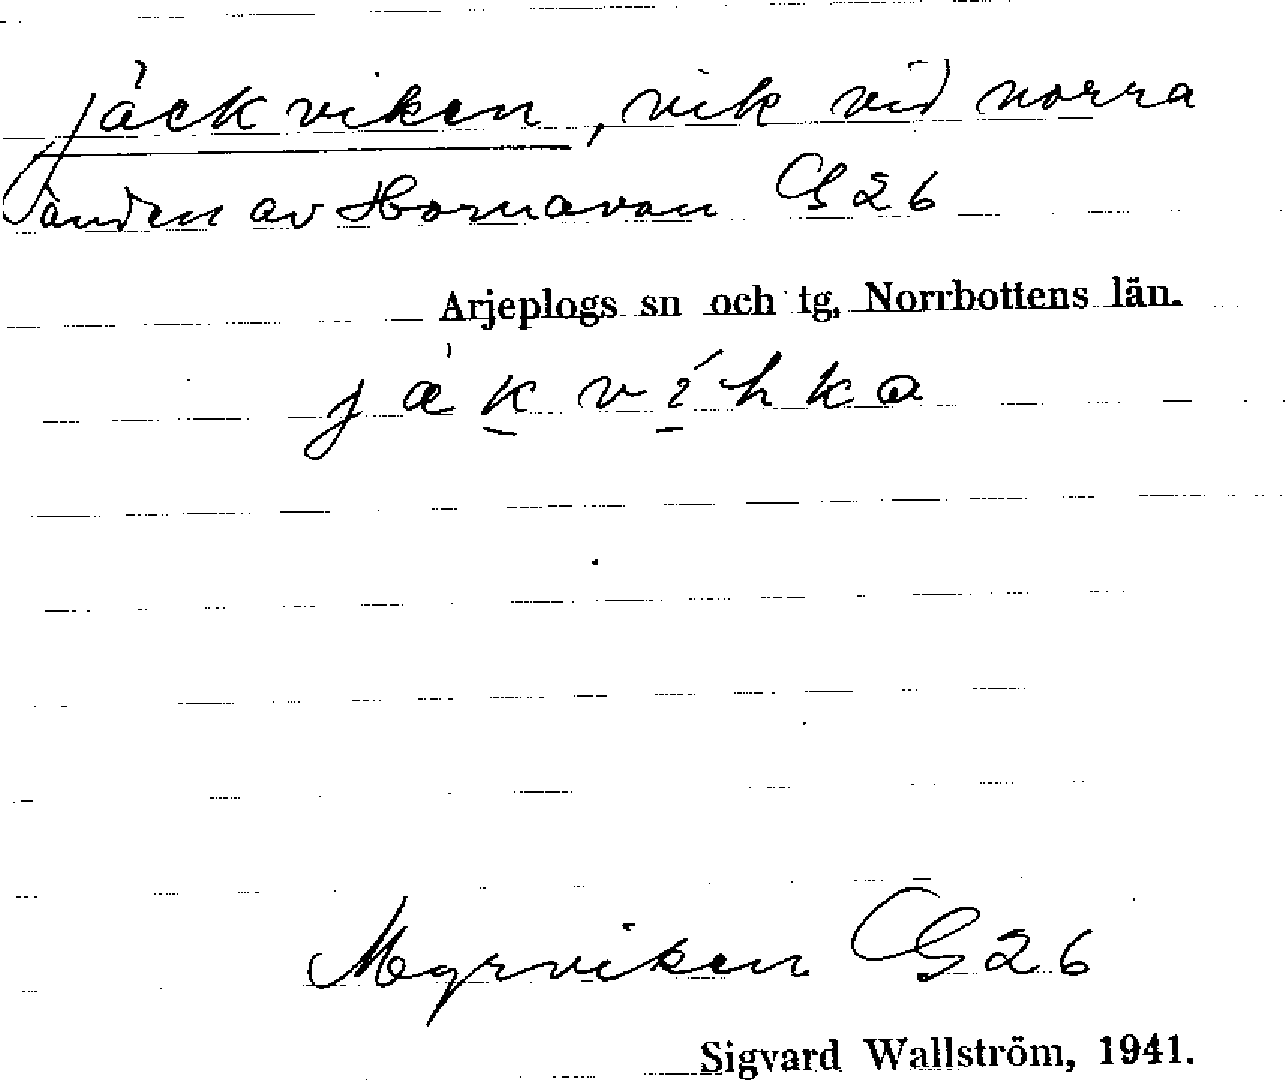 Jäckviken, vik vid norra
änden av Hornavan G 26
Arjeplogs sn och tg, Norrbottens län.
jäkvíhka
Myrviken G 26
Sigvard Wallström, 1941.